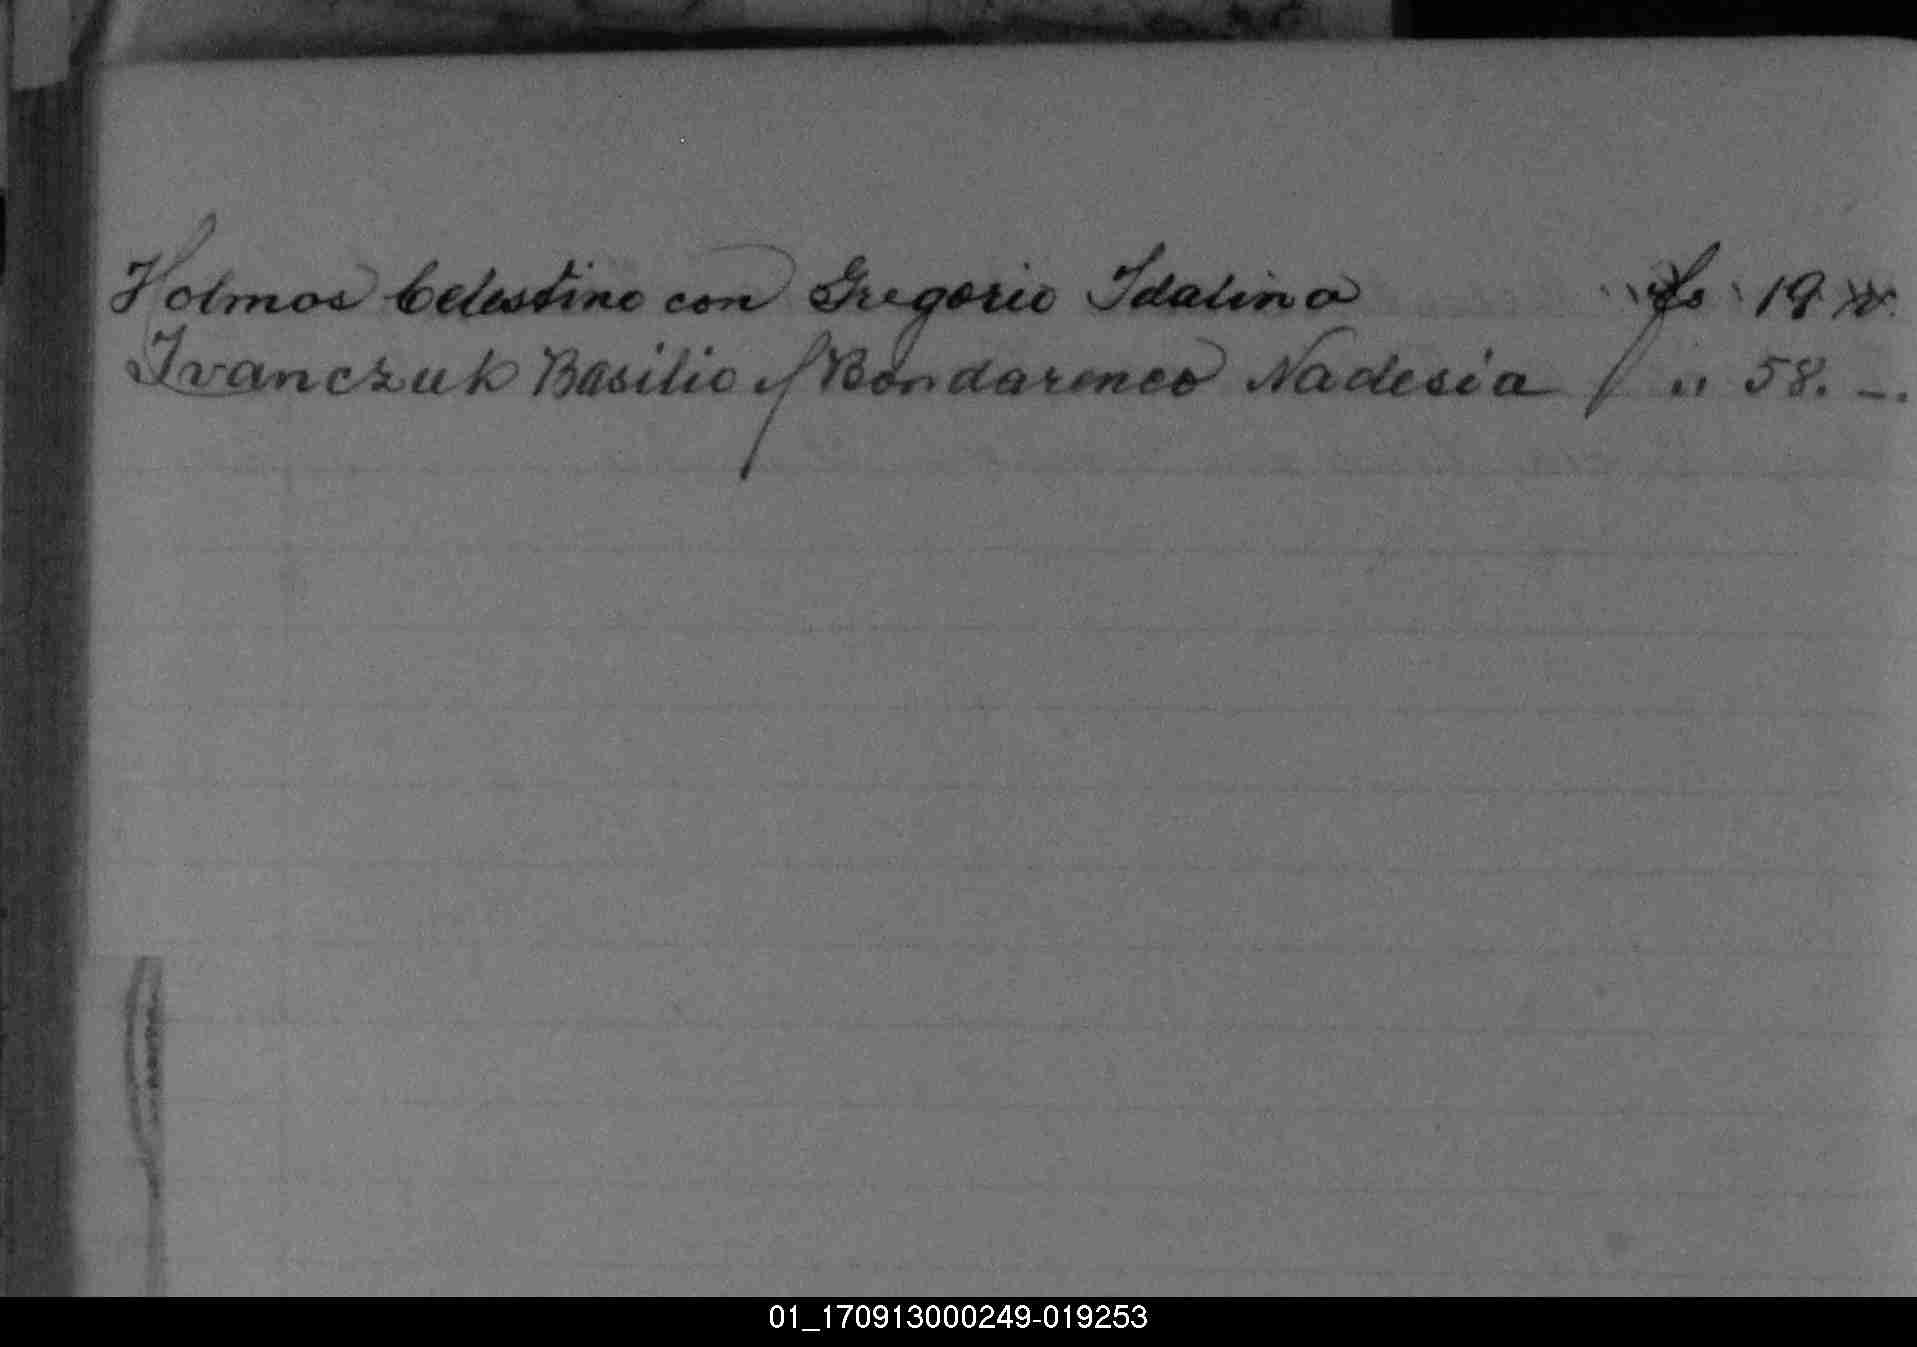 Holmos Celestino con Gregorio Idalina " fo " 19 v.
Ivanczuk Basilio c/ Bondarenco Nadesia / " 58. -.
01_170913000249-019253